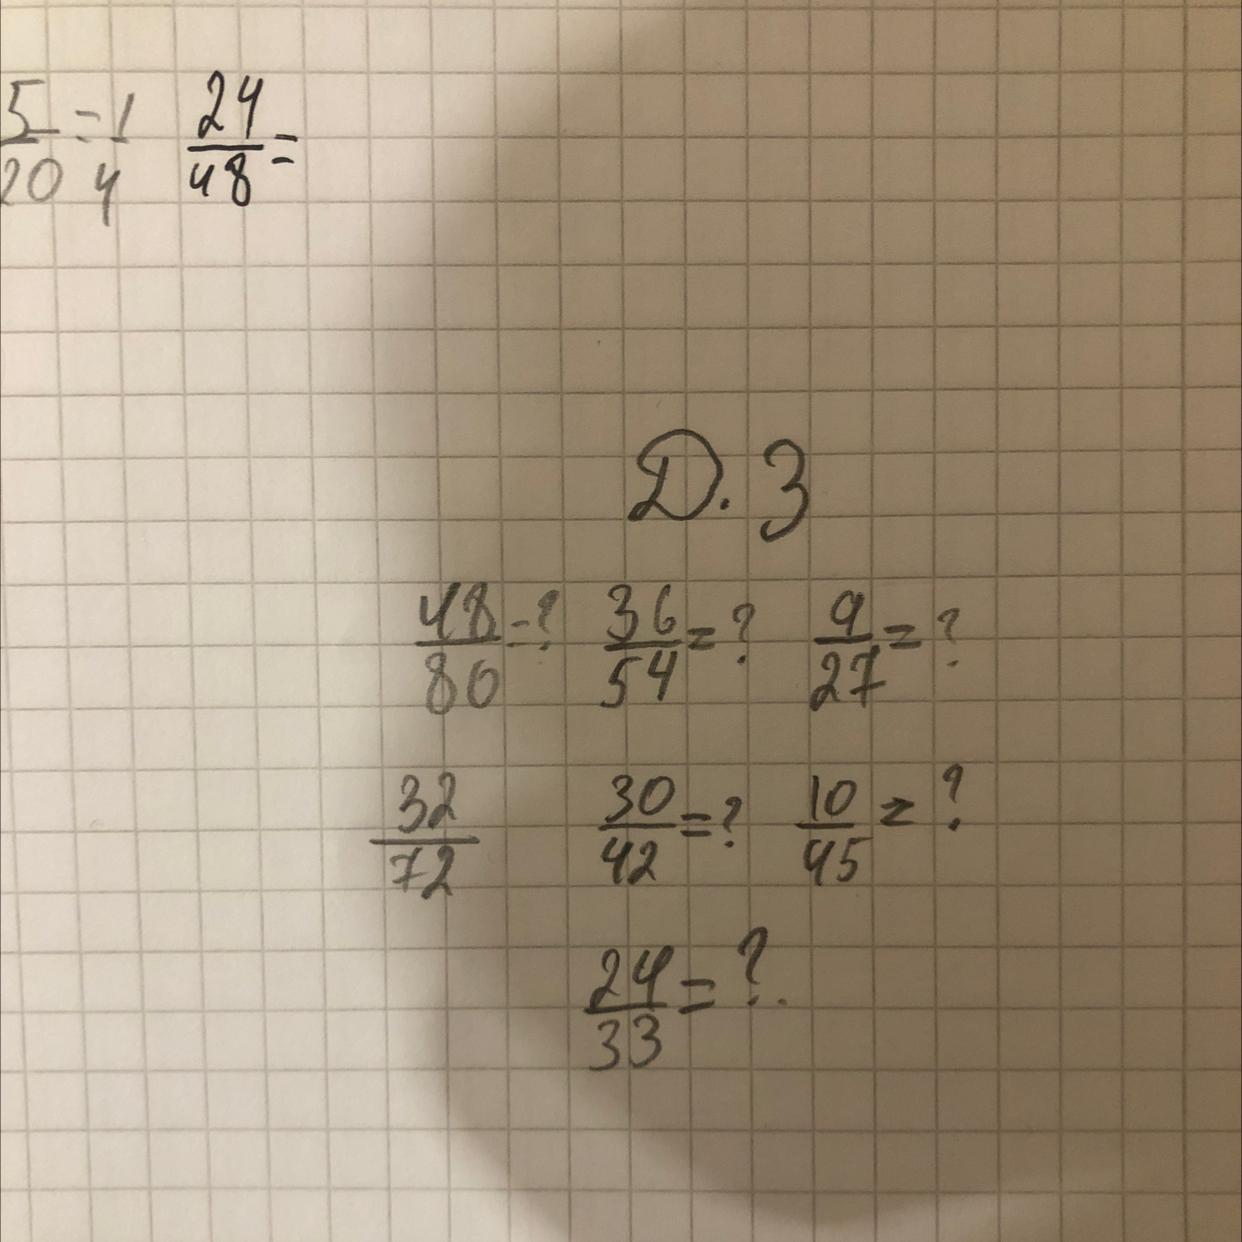 5/20 = 1/4 24/48 =
Д. З
48/80 = ? 36/54 = ? 9/27 = ?
32/72 30/42 = ? 10/45 = ?
24/33 = ?